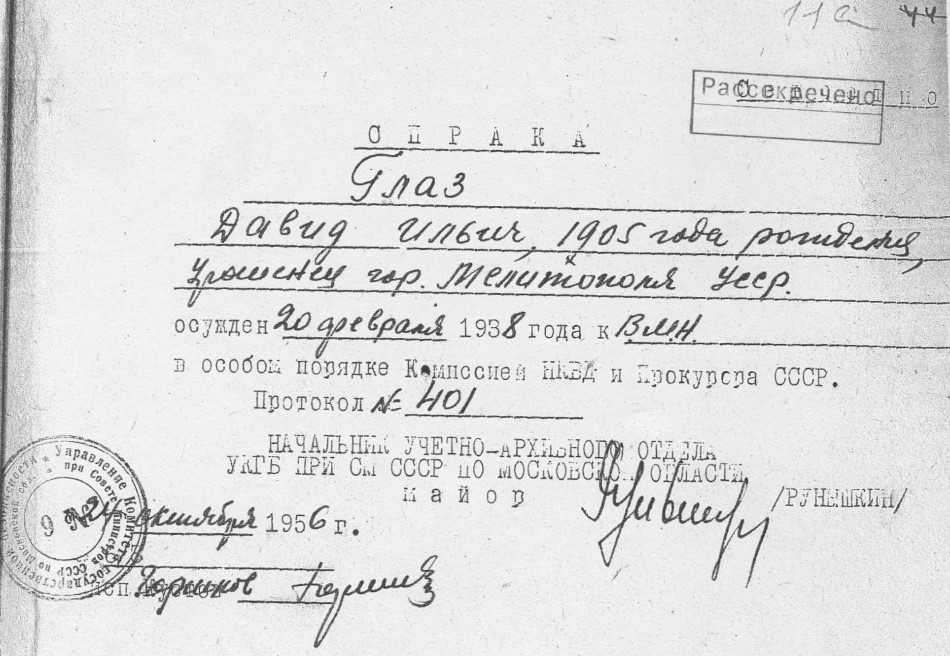 11а 44
Секретно
Рассекречено
СПРАКА
Глаз
Давид Ильич, 1905 года рождения,
Уроженец гор. Мелитополя Усср.
осужден 20 февраля 1938 года к В.М.Н.
в особом порядке Комиссией НКВД и Прокурора СССР.
Протокол № 401
НАЧАЛЬНИК УЧЕТНО-АРХИВНОГО ОТДЕЛА
УКГБ ПРИ СМ СССР ПО МОСКОВСКОЙ ОБЛАСТИ
Майор /РУНЫШКИН/
Управление Комитета государственной безопасности
при Совете Министров СССР по московской области
№ 6
октября 1956 г.